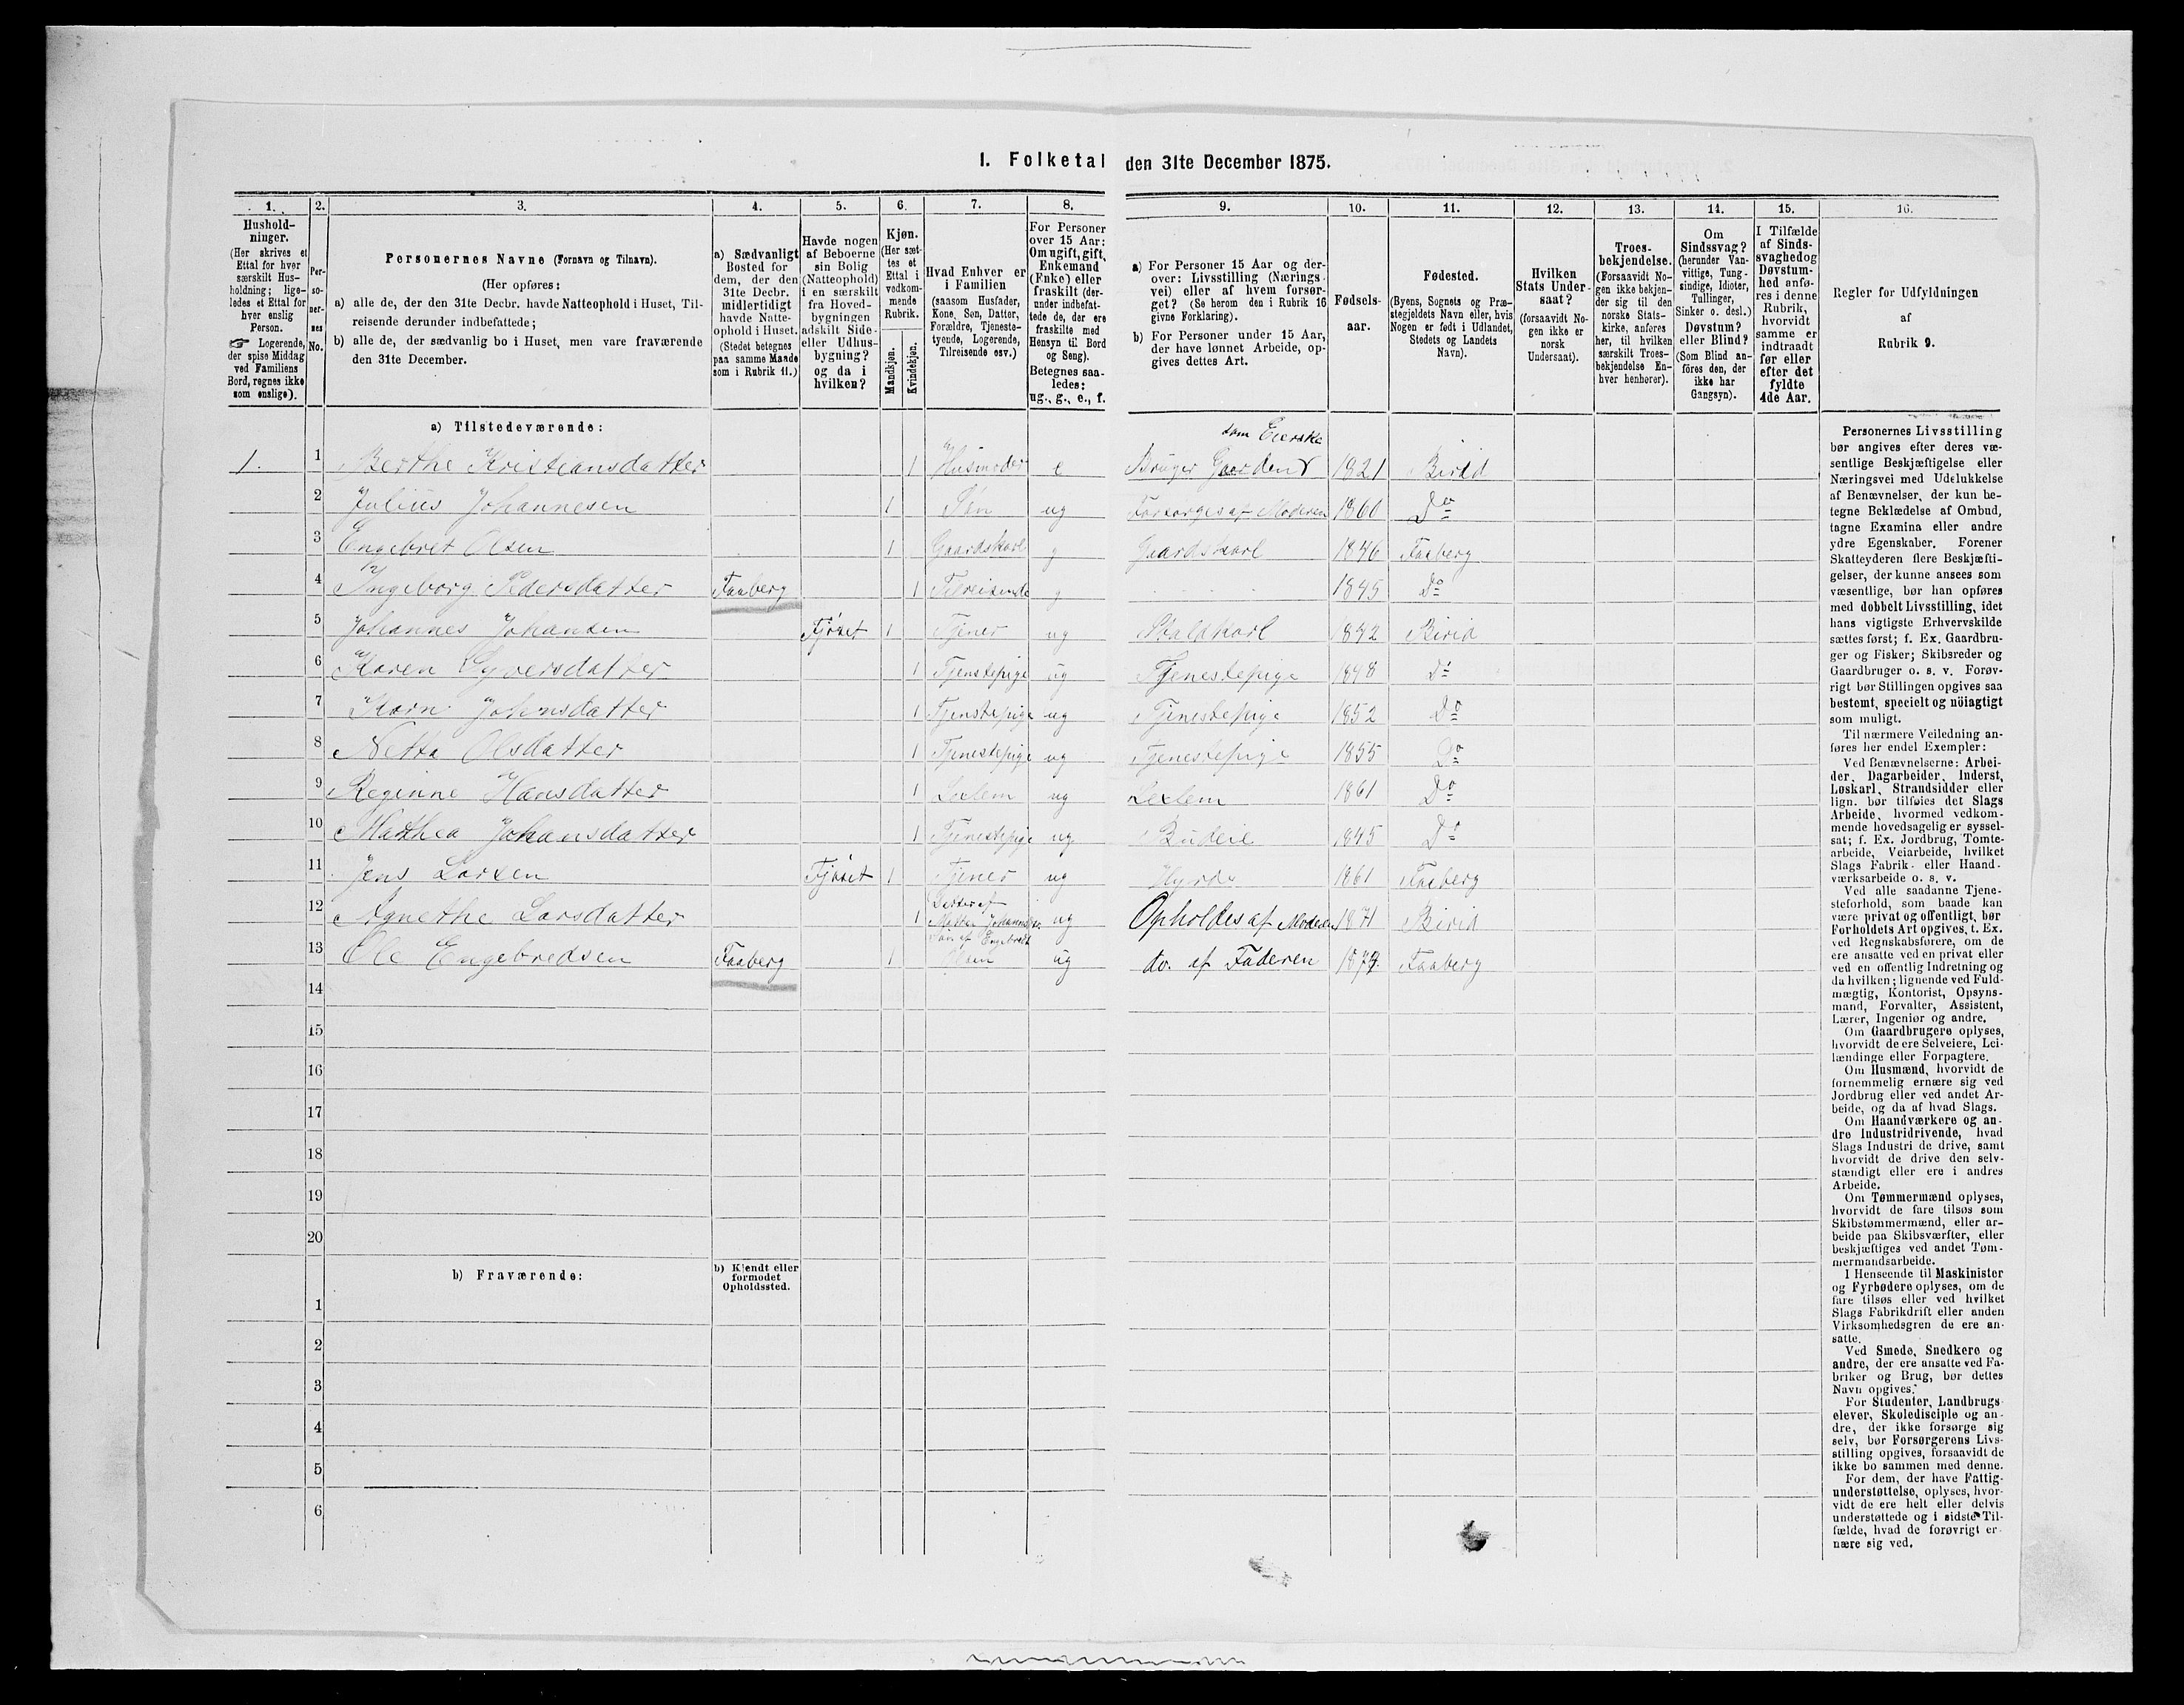 I. Folketal den 31te December 1875.
1. 2. 3. 4. 5. 6. 7. 8. 9. 10. 11. 12. 13. 14. 15. 16.
Hushold-
ninger.
(Her skrives et
Ettal for hver
særskilt Hus-
holdning; lige-
ledes et Ettal for
hver enslig
Person.
☞ Logerende,
der spise Middag
ved Familiens
Bord, regnes ikke
som enslige).
Per-
so-
ner-
nes
No.
Personernes Navne (Fornavn og Tilnavn).
(Her opføres:
a) alle de, der den 31te Decbr. havde Natteophold i Huset, Til-
reisende derunder indbefattede;
b) alle de, der sædvanlig bo i Huset, men vare fraværende
den 31te December.
a) Sædvanligt
Bosted for
dem, der den
31te Decbr.
midlertidigt
havde Natte-
ophold i Huset.
(Stedet betegnes
paa samme Maade
som i Rubrik 11.)
Havde nogen
af Beboerne
sin Bolig
(Natteophold)
i en særskilt
fra Hoved-
bygningen
adskilt Side-
eller Udhus-
bygning?
og da i
hvilken?
Kjøn.
(Her sæt-
tes et
Ettal i
vedkom-
mende
Rubrik.
Mandkjøn.
Kvindekjøn.
Hvad Enhver er
i Familien
(saasom Husfader,
Kone, Søn, Datter,
Forældre, Tjeneste-
tyende, Logerende,
Tilreisende osv.)
For Personer
over 15 Aar:
Om ugift, gift,
Enkemand
(Enke) eller
fraskilt (der-
under indbefat-
tede de, der ere
fraskilte med
Hensyn til Bord
og Seng).
Betegnes saa-
ledes:
ug., g., e., f.
a) For Personer 15 Aar og der-
over: Livsstilling (Nærings-
vei) eller af hvem forsør-
get? (Se herom den i Rubrik 16
givne Forklaring).
b) For Personer under 15 Aar,
der have lønnet Arbeide, op-
gives dettes Art.
Fødsels-
aar.
Fødested.
(Byens, Sognets og Præ-
stegjeldets Navn eller, hvis
Nogen er født i Udlandet,
Stedets og Landets
Navn).
Hvilken
Stats Under-
saat?
(forsaavidt No-
gen ikke er
norsk
Undersaat).
Troes-
bekjendelse.
(Forsaavidt No-
gen ikke bekjen-
der sig til den
norske Stats-
kirke, anføres
her, til hvilken
særskilt Troes-
bekjendelse En-
hver henhører).
Om
Sindssvag?
(herunder Van-
vittige, Tung-
sindige, Idioter,
Tullinger,
Sinker o. desl.)
Døvstum?
eller Blind?
(Som Blind an-
føres den, der
ikke har
Gangsyn).
I Tilfælde
af Sinds-
svaghed og
Døvstum-
hed anfø-
res i denne
Rubrik,
hvorvidt
samme er
indtraadt
før eller
efter det
fyldte
4de Aar.
Regler for Udfyldningen
af
Rubrik 9.
a) Tilstedeværende:
som Eierske
1. 1 Berthe Kristiansdatter 1 Husmoder e Bruger Gaarden 1821 Birid
2 Julius Johannesen 1 Søn ug Forsørges af Moderen 1860 Do
3 Engebret Olsen 1 Gaardskarl g Gaardskarl 1846 Faaberg
4 Ingeborg Pedersdatter Faaberg 1 Tilreisende g 1845 Do
5 Johannes Johansen Fjøset 1 Tjener ug Staldkarl 1842 Birid
6 Karen Syversdatter 1 Tjenstepige ug Tjenestepige 1848 Do
7 Karn Johnsdatter 1 Tjenstepige ug Tjenestepige 1852 Do
8 Netta Olsdatter 1 Tjenestepige ug Tjenestepige 1855 Do
9 Reginne Hansdatter 1 Lexlem ug Lexlem 1861 Do
10 Mathea Johansdatter 1 Tjenestepige ug Budeie 1845 Do
11 Jens Larsen Fjøset 1 Tjener ug Hyrde 1861 Faaberg
12 Agnethe Larsdatter 1 Datter af Mathea Johansdtr. ug Opholdes af Moderen 1871 Birid
13 Ole Engebredsen Faaberg 1 Søn af Engebredt Olsen ug do. af Faderen 1874 Faaberg
14
15
16
17
18
19
20
b) Fraværende:
b) Kjendt eller
formodet
Opholdssted.
1
2
3
4
5
6
Personernes Livsstilling
bør angives efter deres væ-
sentlige Beskjæftigelse eller
Næringsvei med Udelukkelse
af Benævnelser, der kun be-
tegne Beklædelse af Ombud,
tagne Examina eller andre
ydre Egenskaber. Forener
Skatteyderen flere Beskjæfti-
gelser, der kunne ansees som
væsentlige, bør han opføres
med dobbelt Livsstilling, idet
hans vigtigste Erhvervskilde
sættes først; f. Ex. Gaardbru-
ger og Fisker; Skibsreder og
Gaardbruger o. s. v. Forøv-
rigt bør Stillingen opgives saa
bestemt, specielt og nöiagtigt
som muligt.
Til nærmere Veiledning an-
føres her endel Exempler:
Ved Benævnelserne: Arbei-
der, Dagarbeider, Inderst,
Løskarl, Strandsidder eller
lign. bør tilføies det Slags
Arbeide, hvormed vedkom-
mende hovedsagelig er syssel-
sat; f. Ex. Jordbrug, Tomte-
arbeide, Veiarbeide, hvilket
Slags Fabrik- eller Haand-
værksarbeide o. s. v.
Ved alle saadanne Tjene-
steforhold, som baade kan
være privat og offentligt, bør
Forholdets Art opgives, t. Ex.
ved Regnskabsførere, om de
ere ansatte ved en privat eller
ved en offentlig Indretning og
da hvilken; lignende ved Fuld-
mægtig, Kontorist, Opsyns-
mand, Forvalter, Assistent,
Lærer, Ingeniør og andre.
Om Gaardbrugere oplyses,
hvorvidt de ere Selveiere, Lei-
lændinge eller Forpagtere.
Om Husmænd, hvorvidt de
fornemmelig ernære sig ved
Jordbrug eller ved andet Ar-
beide, og da af hvad Slags.
Om Haandværkere og an-
dre Industridrivende, hvad
Slags Industri de drive, samt
hvorvidt de drive den selv-
stændigt eller ere i andres
Arbeide.
Om Tømmermænd oplyses,
hvorvidt de fare tilsøs som
Skibstømmermænd, eller ar-
beide paa Skibsværfter, eller
beskjæftiges ved andet Tøm-
mermandsarbeide.
I Henseende til Maskinister
og Fyrbødere oplyses, om de
fare tilsøs eller ved hvilket
Slags Fabrikdrift eller anden
Virksomhedsgren de ere an-
satte.
Ved Smede, Snedkere og
andre, der ere ansatte ved Fa-
briker og Brug, bør dettes
Navn opgives.
For Studenter, Landbrugs-
elever, Skoledisciple og an-
dre, der ikke forsørge sig
selv, bør Forsørgerens Livs-
stilling opgives, forsaavidt de
ikke bo sammen med denne.
For dem, der have Fattig-
understøttelse, oplyses, hvor-
vidt de ere helt eller delvis
understøttede og i sidste Til-
fælde, hvad de forøvrigt er-
nære sig ved.